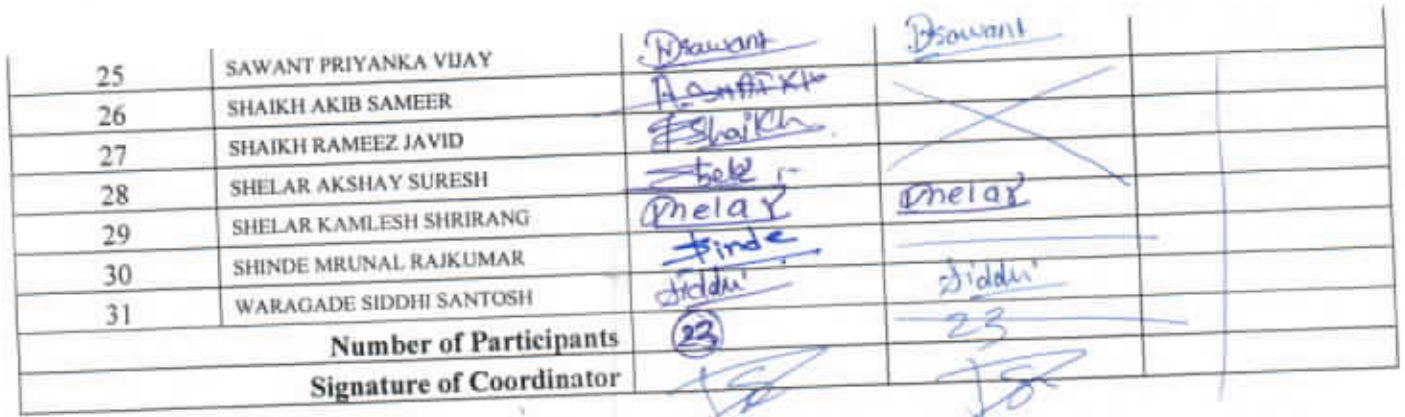 25 SAWANT PRIYANKA VIJAY Dsawant Dsawant
26 SHAIKH AKIB SAMEER A.SHAIKH
27 SHAIKH RAMEEZ JAVID Shaikh
28 SHELAR AKSHAY SURESH
29 SHELAR KAMLESH SHRIRANG Shelar Shelar
30 SHINDE MRUNAL RAJKUMAR Sinde
31 WARAGADE SIDDHI SANTOSH Siddhi Siddhi
Number of Participants 23 23
Signature of Coordinator